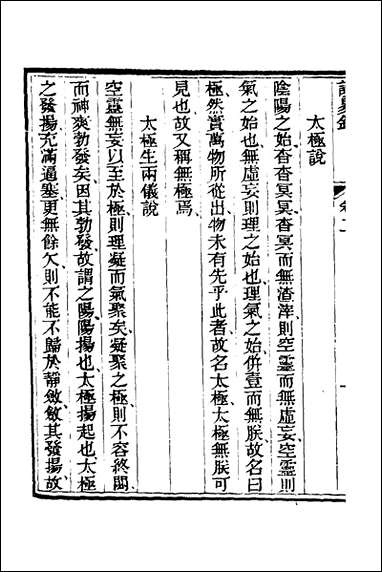 讀易錄
卷十一
太極說
陰陽之始杳杳冥冥杳冥而無渣滓則空靈而無虛妄空靈則
氣之始也無虛妄則理之始也理氣之始併壹而無朕故名曰
極然實萬物所從出物未有先乎此者故名太極太極無朕可
見也故又稱無極焉
太極生兩儀說
空靈無妄以至於極則理凝而氣聚矣凝聚之極則不容終閟
而神爽勃發矣因其勃發故謂之陽陽揚也太極揚起也太極
之發揚充滿逼塞更無餘欠則不能不歸於靜斂斂其發揚故